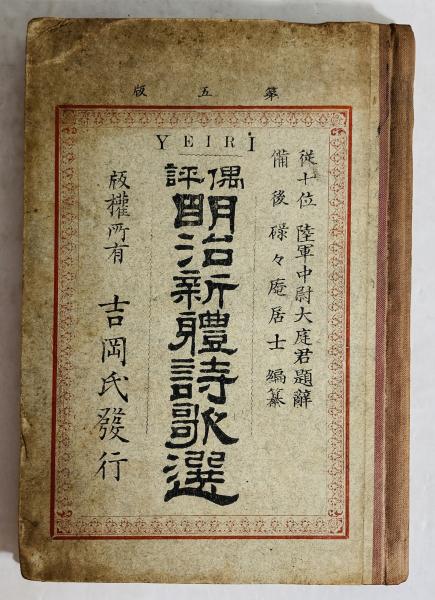 第五版
YEIRI
從十位 陸軍中尉大庭君題辭
備後 碌々庵居士 編纂
偶評
明治新體詩歌選
版權所有
吉岡氏發行